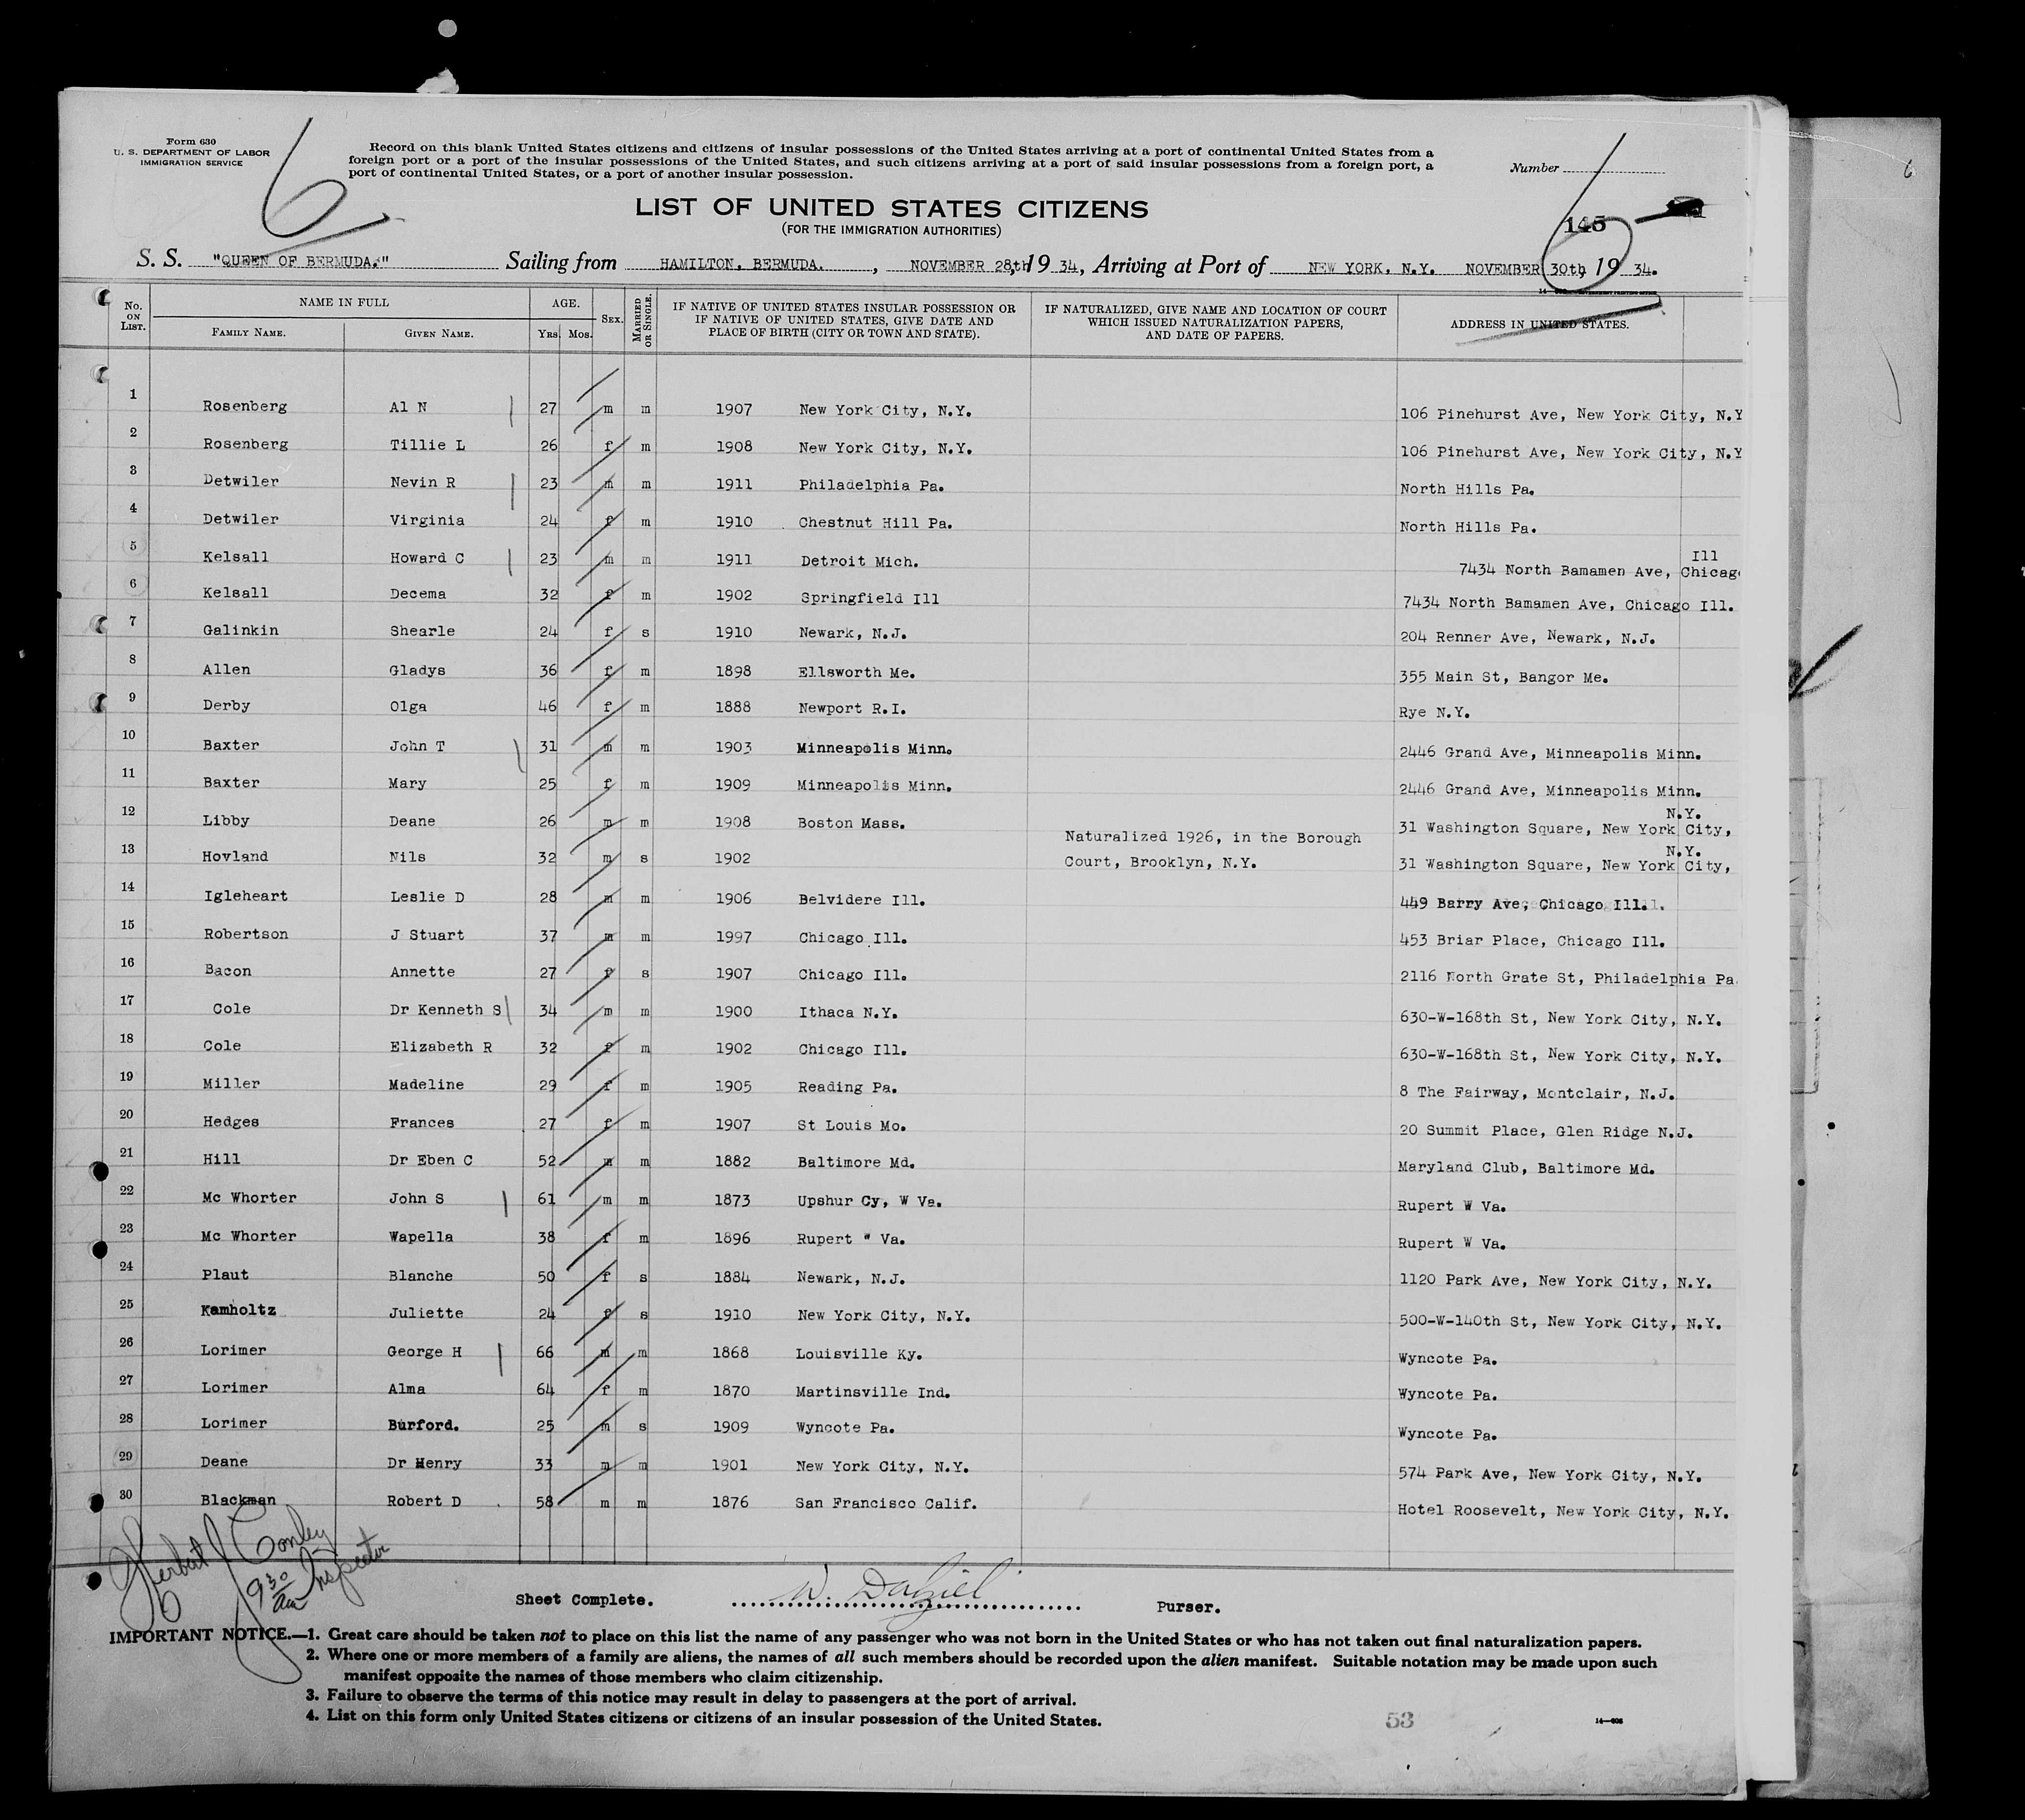 Form 630
U. S. DEPARTMENT OF LABOR
IMMIGRATION SERVICE
6
Record on this blank United States citizens and citizens of insular possessions of the United States arriving at a port of continental United States from a
foreign port or a port of the insular possessions of the United States, and such citizens arriving at a port of said insular possessions from a foreign port, a
port of continental United States, or a port of another insular possession.
Number
6
145
LIST OF UNITED STATES CITIZENS
(FOR THE IMMIGRATION AUTHORITIES)
S. S. "QUEEN OF BERMUDA." Sailing from HAMILTON. BERMUDA. , NOVEMBER 28,th 19 34, Arriving at Port of NEW YORK, N.Y. NOVEMBER 30th, 19 34.
No. ON LIST. NAME IN FULL FAMILY NAME. GIVEN NAME. AGE. YRS. MOS. SEX. MARRIED OR SINGLE. IF NATIVE OF UNITED STATES INSULAR POSSESSION OR IF NATIVE OF UNITED STATES, GIVE DATE AND PLACE OF BIRTH (CITY OR TOWN AND STATE). IF NATURALIZED, GIVE NAME AND LOCATION OF COURT WHICH ISSUED NATURALIZATION PAPERS, AND DATE OF PAPERS. ADDRESS IN UNITED STATES.
1 Rosenberg Al N 27 m m 1907 New York City, N.Y. 106 Pinehurst Ave, New York City, N.Y
2 Rosenberg Tillie L 26 f m 1908 New York City, N.Y. 106 Pinehurst Ave, New York City, N.Y
3 Detwiler Nevin R 23 m m 1911 Philadelphia Pa. North Hills Pa.
4 Detwiler Virginia 24 f m 1910 Chestnut Hill Pa. North Hills Pa.
5 Kelsall Howard C 23 m m 1911 Detroit Mich. 7434 North Bamamen Ave, Chicago Ill
6 Kelsall Decema 32 f m 1902 Springfield Ill 7434 North Bamamen Ave, Chicago Ill.
7 Galinkin Shearle 24 f s 1910 Newark, N.J. 204 Renner Ave, Newark, N.J.
8 Allen Gladys 36 f m 1898 Ellsworth Me. 355 Main St, Bangor Me.
9 Derby Olga 46 f m 1888 Newport R.I. Rye N.Y.
10 Baxter John T 31 m m 1903 Minneapolis Minn. 2446 Grand Ave, Minneapolis Minn.
11 Baxter Mary 25 f m 1909 Minneapolis Minn. 2446 Grand Ave, Minneapolis Minn.
12 Libby Deane 26 m m 1908 Boston Mass. 31 Washington Square, New York City, N.Y.
13 Hovland Nils 32 m s 1902 Naturalized 1926, in the Borough Court, Brooklyn, N.Y. 31 Washington Square, New York City, N.Y.
14 Igleheart Leslie D 28 m m 1906 Belvidere Ill. 449 Barry Ave, Chicago Ill.
15 Robertson J Stuart 37 m m 1997 Chicago Ill. 453 Briar Place, Chicago Ill.
16 Bacon Annette 27 f s 1907 Chicago Ill. 2116 North Grate St, Philadelphia Pa.
17 Cole Dr Kenneth S 34 m m 1900 Ithaca N.Y. 630-W-168th St, New York City, N.Y.
18 Cole Elizabeth R 32 f m 1902 Chicago Ill. 630-W-168th St, New York City, N.Y.
19 Miller Madeline 29 f m 1905 Reading Pa. 8 The Fairway, Montclair, N.J.
20 Hedges Frances 27 f m 1907 St Louis Mo. 20 Summit Place, Glen Ridge N.J.
21 Hill Dr Eben C 52 m m 1882 Baltimore Md. Maryland Club, Baltimore Md.
22 Mc Whorter John S 61 m m 1873 Upshur Cy, W Va. Rupert W Va.
23 Mc Whorter Wapella 38 f m 1896 Rupert W Va. Rupert W Va.
24 Plaut Blanche 50 f s 1884 Newark, N.J. 1120 Park Ave, New York City, N.Y.
25 Kamholtz Juliette 24 f s 1910 New York City, N.Y. 500-W-140th St, New York City, N.Y.
26 Lorimer George H 66 m m 1868 Louisville Ky. Wyncote Pa.
27 Lorimer Alma 64 f m 1870 Martinsville Ind. Wyncote Pa.
28 Lorimer Burford. 25 m s 1909 Wyncote Pa. Wyncote Pa.
29 Deane Dr Henry 33 m m 1901 New York City, N.Y. 574 Park Ave, New York City, N.Y.
30 Blackman Robert D . 58 m m 1876 San Francisco Calif. Hotel Roosevelt, New York City, N.Y.
Herbert J Conley
9 30 am Inspector
Sheet Complete. W. Dalziel Purser.
IMPORTANT NOTICE.—1. Great care should be taken not to place on this list the name of any passenger who was not born in the United States or who has not taken out final naturalization papers.
2. Where one or more members of a family are aliens, the names of all such members should be recorded upon the alien manifest. Suitable notation may be made upon such
manifest opposite the names of those members who claim citizenship.
3. Failure to observe the terms of this notice may result in delay to passengers at the port of arrival.
4. List on this form only United States citizens or citizens of an insular possession of the United States.
53
14—606